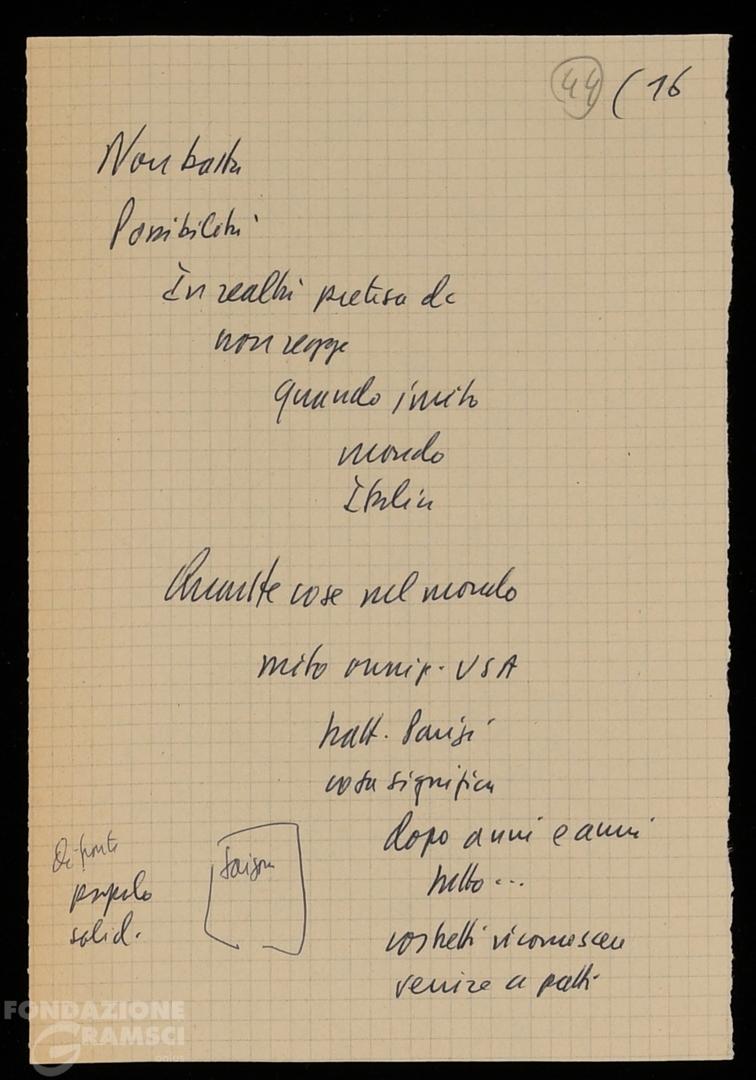 44 (16
Non basta
Possibilità
In realtà pretesa di
non regge
quando
mondo
Italia
Quante cose nel mondo
mito onnip. USA
tratt. Parigi
cosa significa
dopo anni e anni
tutto...
costretti riconoscere
venire a patti
Di fronte
popolo
solid.
Saigon
FONDAZIONE
GRAMSCI
onlus